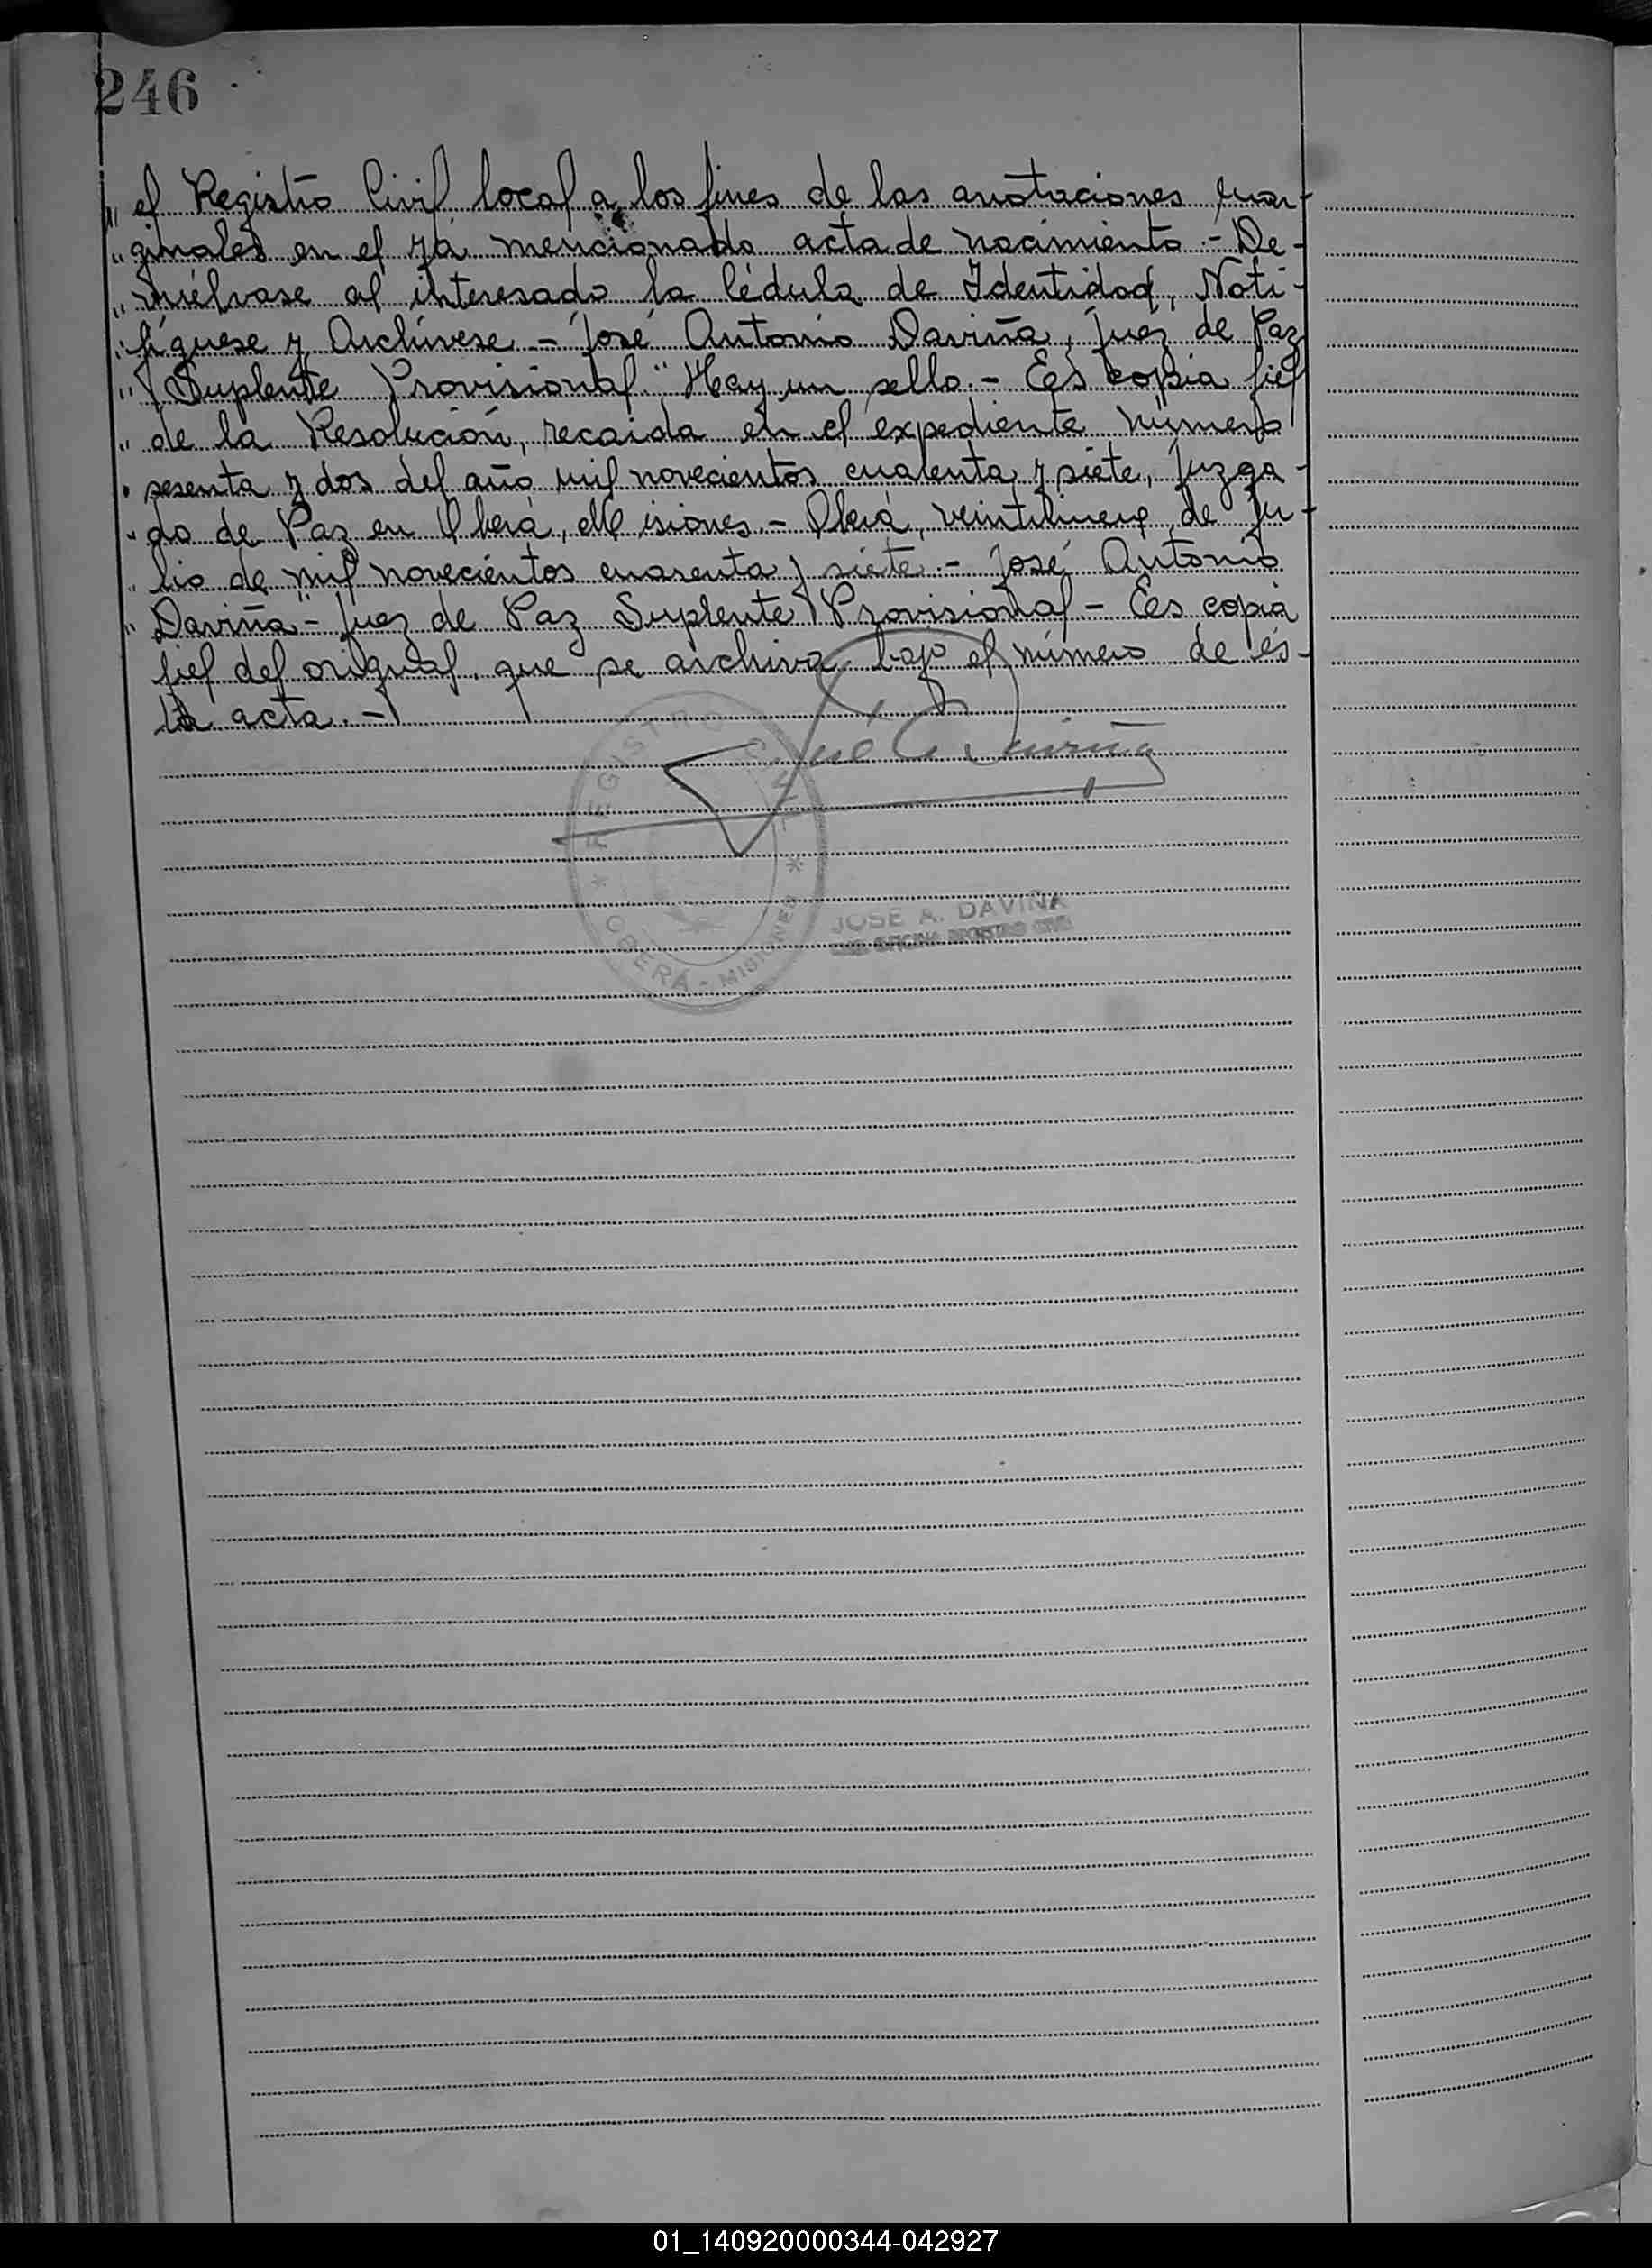 246
" el Registro Civil local a los fines de las anotaciones mar-
" ginales en el ya mencionado acta de nacimiento.- De-
" vuélvase al interesado la Cédula de Identidad, Noti-
" fíquese y Archívese.- José Antonio Daviña, Juez de Paz
" Suplente Provisional" Hay un sello.- Es copia fiel
" de la Resolución, recaida en el expediente número
" sesenta y dos del año mil novecientos cuarenta y siete, Juzga-
" do de Paz en Oberá, Misiones.- Oberá, veintinueve de Ju-
" lio de mil novecientos cuarenta y siete.- José Antonio
" Daviña"- Juez de Paz Suplente Provisional- Es copia
fiel del original, que se archiva bajo el número de és-
ta acta.-
José A. Daviña
* REGISTRO CIVIL * OBERÁ - MISIONES
JOSÉ A. DAVIÑA
OFICINA REGISTRO CIVIL
01_140920000344-042927